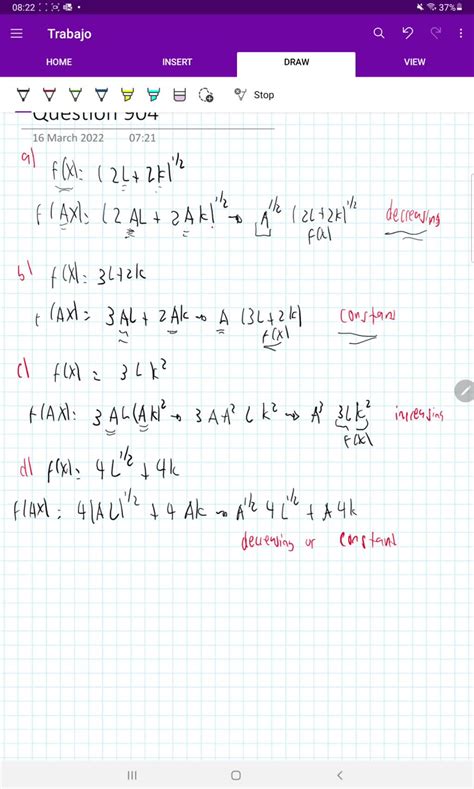 08:22 37%
Trabajo
HOME INSERT DRAW VIEW
Stop
Question 904
16 March 2022 07:21
a) f(x): (2L+2k)^1/2
f(Ax): (2AL + 2Ak)^1/2 → A^1/2 (2L+2k)^1/2 decreasing
f(x)
b) f(x): 3L+2k
f(Ax): 3AL + 2Ak → A (3L+2k) constant
f(x)
c) f(x) = 3Lk²
f(Ax): 3AL(Ak)² → 3AA²Lk² → A³ 3Lk² increasing
f(x)
d) f(x): 4L^1/2 + 4k
f(Ax): 4(AL)^1/2 + 4Ak → A^1/2 4L^1/2 + A4k
decreasing or constant